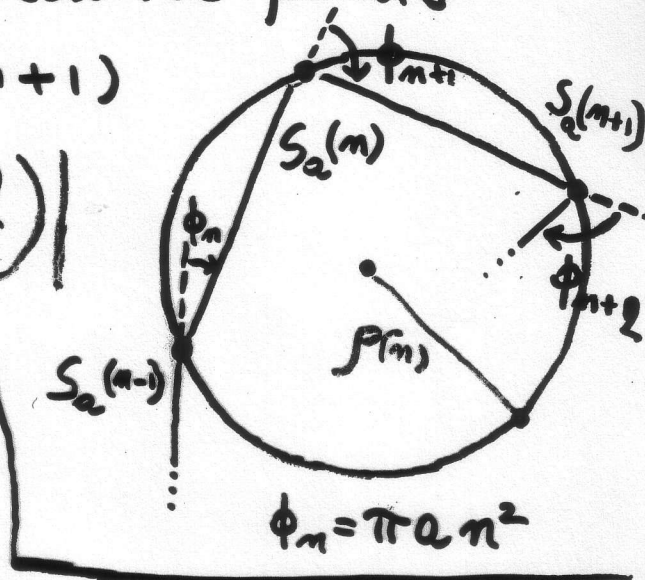 n+1)
ϕ n+1
S_a(n+1)
S_a(n)
ϕ_n
ϕ_{n+2}
ρ(n)
S_a(n-1)
ϕ_n = π a n²